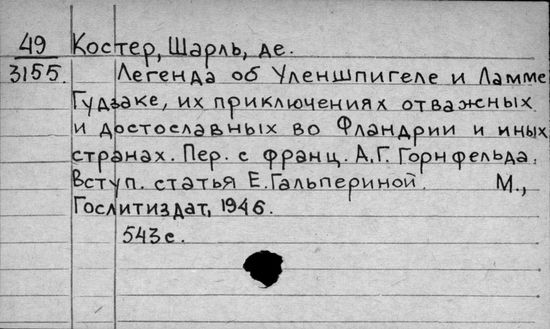 49 Костер, Шарль, де.
3155. Легенда об Уленшпигеле и Ламме
Гудзаке, их приключениях отважных
и достославных во Фландрии и иных
странах. Пер. с франц. А.Г. Горнфельда.
Вступ. статья Е.Гальпериной. М.,
Гослитиздат, 1946.
543 с.